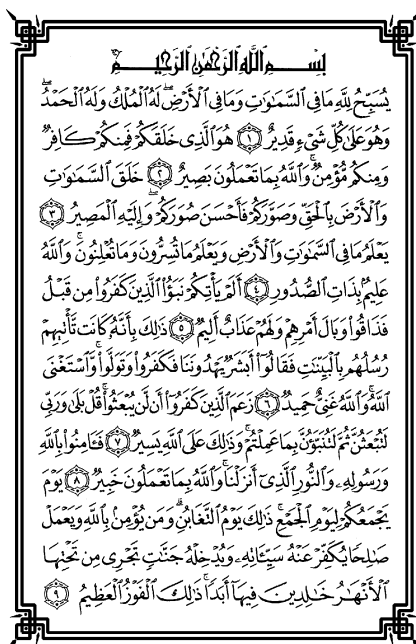 بِسْمِ ٱللَّهِ ٱلرَّحْمَٰنِ ٱلرَّحِيمِ
يُسَبِّحُ لِلَّهِ مَا فِي ٱلسَّمَٰوَٰتِ وَمَا فِي ٱلْأَرْضِۖ لَهُ ٱلْمُلْكُ وَلَهُ ٱلْحَمْدُۖ
وَهُوَ عَلَىٰ كُلِّ شَىْءٍ قَدِيرٌ ١ هُوَ ٱلَّذِي خَلَقَكُمْ فَمِنكُمْ كَافِرٌ
وَمِنكُم مُّؤْمِنٌۚ وَٱللَّهُ بِمَا تَعْمَلُونَ بَصِيرٌ ٢ خَلَقَ ٱلسَّمَٰوَٰتِ
وَٱلْأَرْضَ بِٱلْحَقِّ وَصَوَّرَكُمْ فَأَحْسَنَ صُوَرَكُمْۖ وَإِلَيْهِ ٱلْمَصِيرُ ٣
يَعْلَمُ مَا فِي ٱلسَّمَٰوَٰتِ وَٱلْأَرْضِ وَيَعْلَمُ مَا تُسِرُّونَ وَمَا تُعْلِنُونَۚ وَٱللَّهُ
عَلِيمٌۢ بِذَاتِ ٱلصُّدُورِ ٤ أَلَمْ يَأْتِكُمْ نَبَؤُاْ ٱلَّذِينَ كَفَرُواْ مِن قَبْلُ
فَذَاقُواْ وَبَالَ أَمْرِهِمْ وَلَهُمْ عَذَابٌ أَلِيمٌ ٥ ذَٰلِكَ بِأَنَّهُۥ كَانَت تَّأْتِيهِمْ
رُسُلُهُم بِٱلْبَيِّنَٰتِ فَقَالُوٓاْ أَبَشَرٌ يَهْدُونَنَا فَكَفَرُواْ وَتَوَلَّواْۚ وَّٱسْتَغْنَى
ٱللَّهُۚ وَٱللَّهُ غَنِيٌّ حَمِيدٌ ٦ زَعَمَ ٱلَّذِينَ كَفَرُوٓاْ أَن لَّن يُبْعَثُواْۚ قُلْ بَلَىٰ وَرَبِّي
لَتُبْعَثُنَّ ثُمَّ لَتُنَبَّؤُنَّ بِمَا عَمِلْتُمْۚ وَذَٰلِكَ عَلَى ٱللَّهِ يَسِيرٌ ٧ فَـَٔامِنُواْ بِٱللَّهِ
وَرَسُولِهِۦ وَٱلنُّورِ ٱلَّذِيٓ أَنزَلْنَاۚ وَٱللَّهُ بِمَا تَعْمَلُونَ خَبِيرٌ ٨ يَوْمَ
يَجْمَعُكُمْ لِيَوْمِ ٱلْجَمْعِۖ ذَٰلِكَ يَوْمُ ٱلتَّغَابُنِۗ وَمَن يُؤْمِنۢ بِٱللَّهِ وَيَعْمَلْ
صَٰلِحًا يُكَفِّرْ عَنْهُ سَيِّـَٔاتِهِۦ وَيُدْخِلْهُ جَنَّٰتٍ تَجْرِي مِن تَحْتِهَا
ٱلْأَنْهَٰرُ خَٰلِدِينَ فِيهَآ أَبَدًاۚ ذَٰلِكَ ٱلْفَوْزُ ٱلْعَظِيمُ ٩